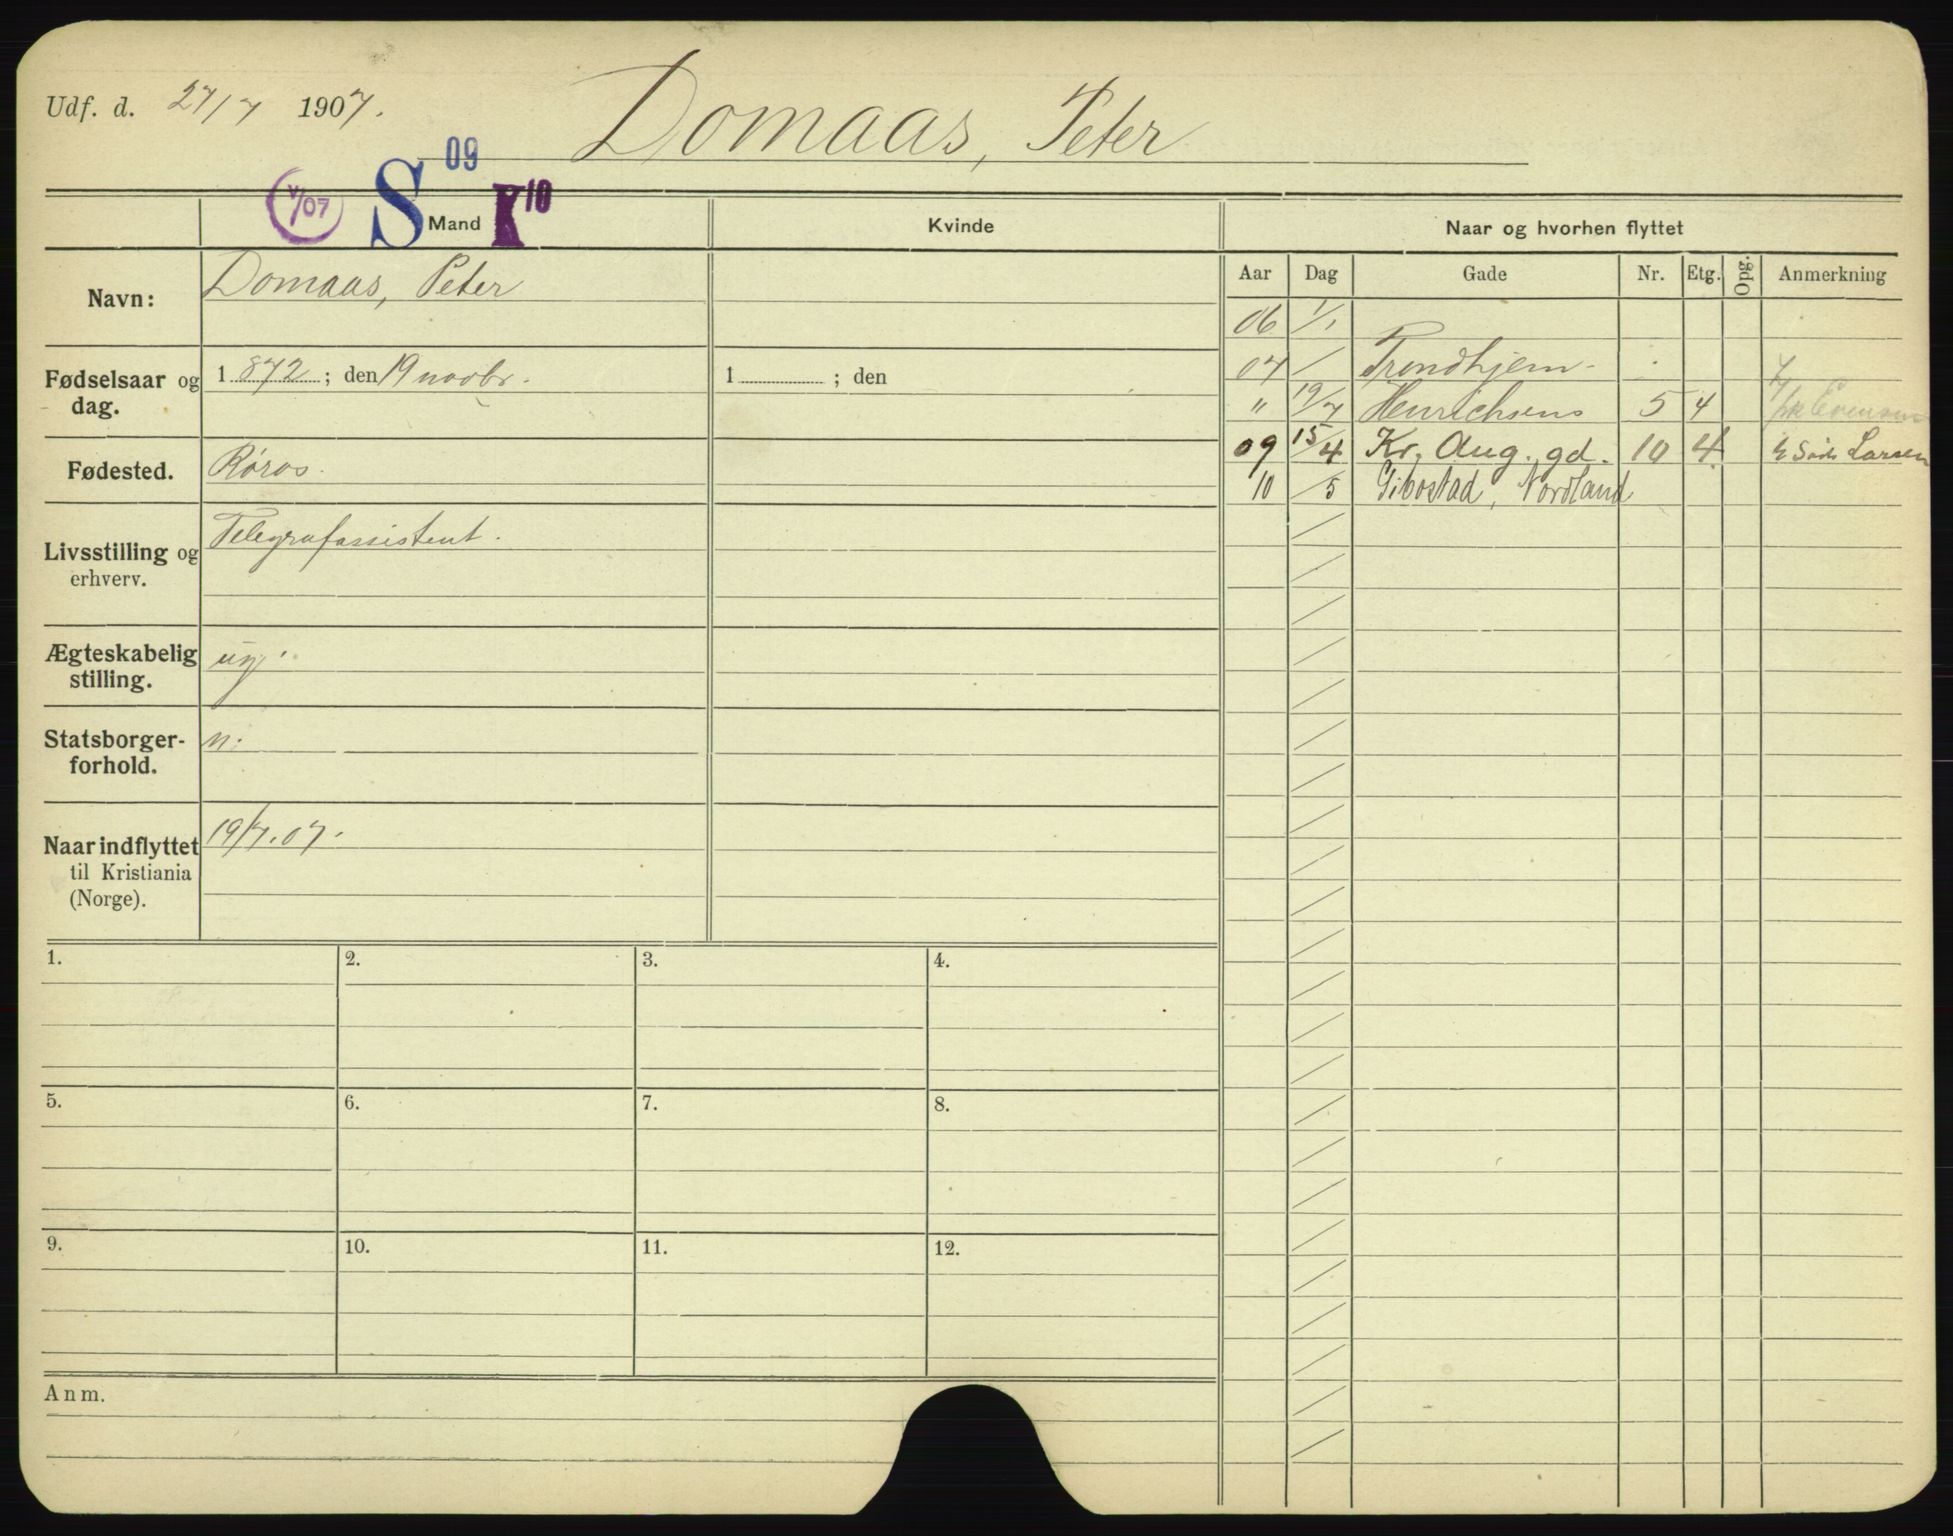 Udf. d. 27/7 1907.
Domaas, Peter
09
V/07 S Mand K 10
Kvinde
Naar og hvorhen flyttet
Aar Dag Gade Nr. Etg. Opg. Anmerkning
Navn: Domaas, Peter
Fødselsaar og dag. 1872; den 19 novbr.
1 ; den
Fødested. Røros.
Livsstilling og erhverv. Telegrafassistent.
Ægteskabelig stilling. ug.
Statsborgerforhold. n.
Naar indflyttet til Kristiania (Norge). 19/7.07.
06 1/1
07 / Trondhjem -
" 19/7 Henrichsens 5 4 Evensen
09 15/4 Kr. Aug. gd. 10 4 Larsen
10 /5 Gibostad, Nordland
1. 2. 3. 4.
5. 6. 7. 8.
9. 10. 11. 12.
Anm.